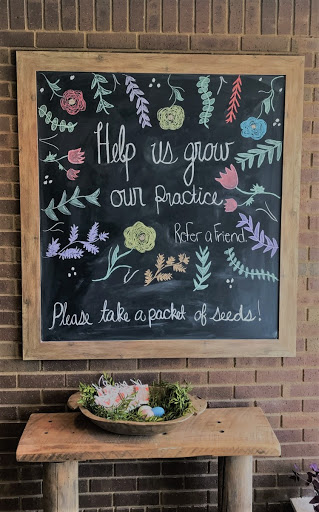 Help us grow
our practice
Refer a friend
Please take a packet of seeds!